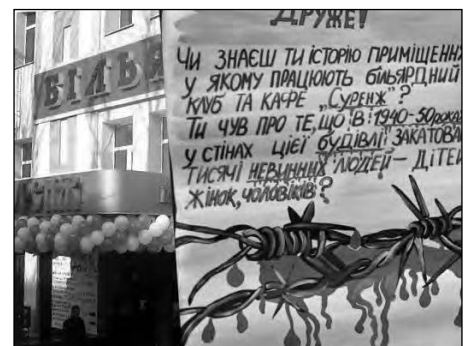 БІЛЬЯ
ДРУЖЕ!
ЧИ ЗНАЄШ ТИ ІСТОРІЮ ПРИМІЩЕНН
У ЯКОМУ ПРАЦЮЮТЬ БИЛЬЯРДНИЙ
КЛУБ ТА КАФЕ „СУРЕНЖ"?
ТИ ЧУВ ПРО ТЕ, ЩО В 1940-50 роках
У СТІНАХ ЦІЄЇ БУДІВЛІ ЗАКАТОВА
ТИСЯЧІ НЕВИННИХ ЛЮДЕЙ – ДІТЕЙ
ЖІНОК, ЧОЛОВІКІВ?